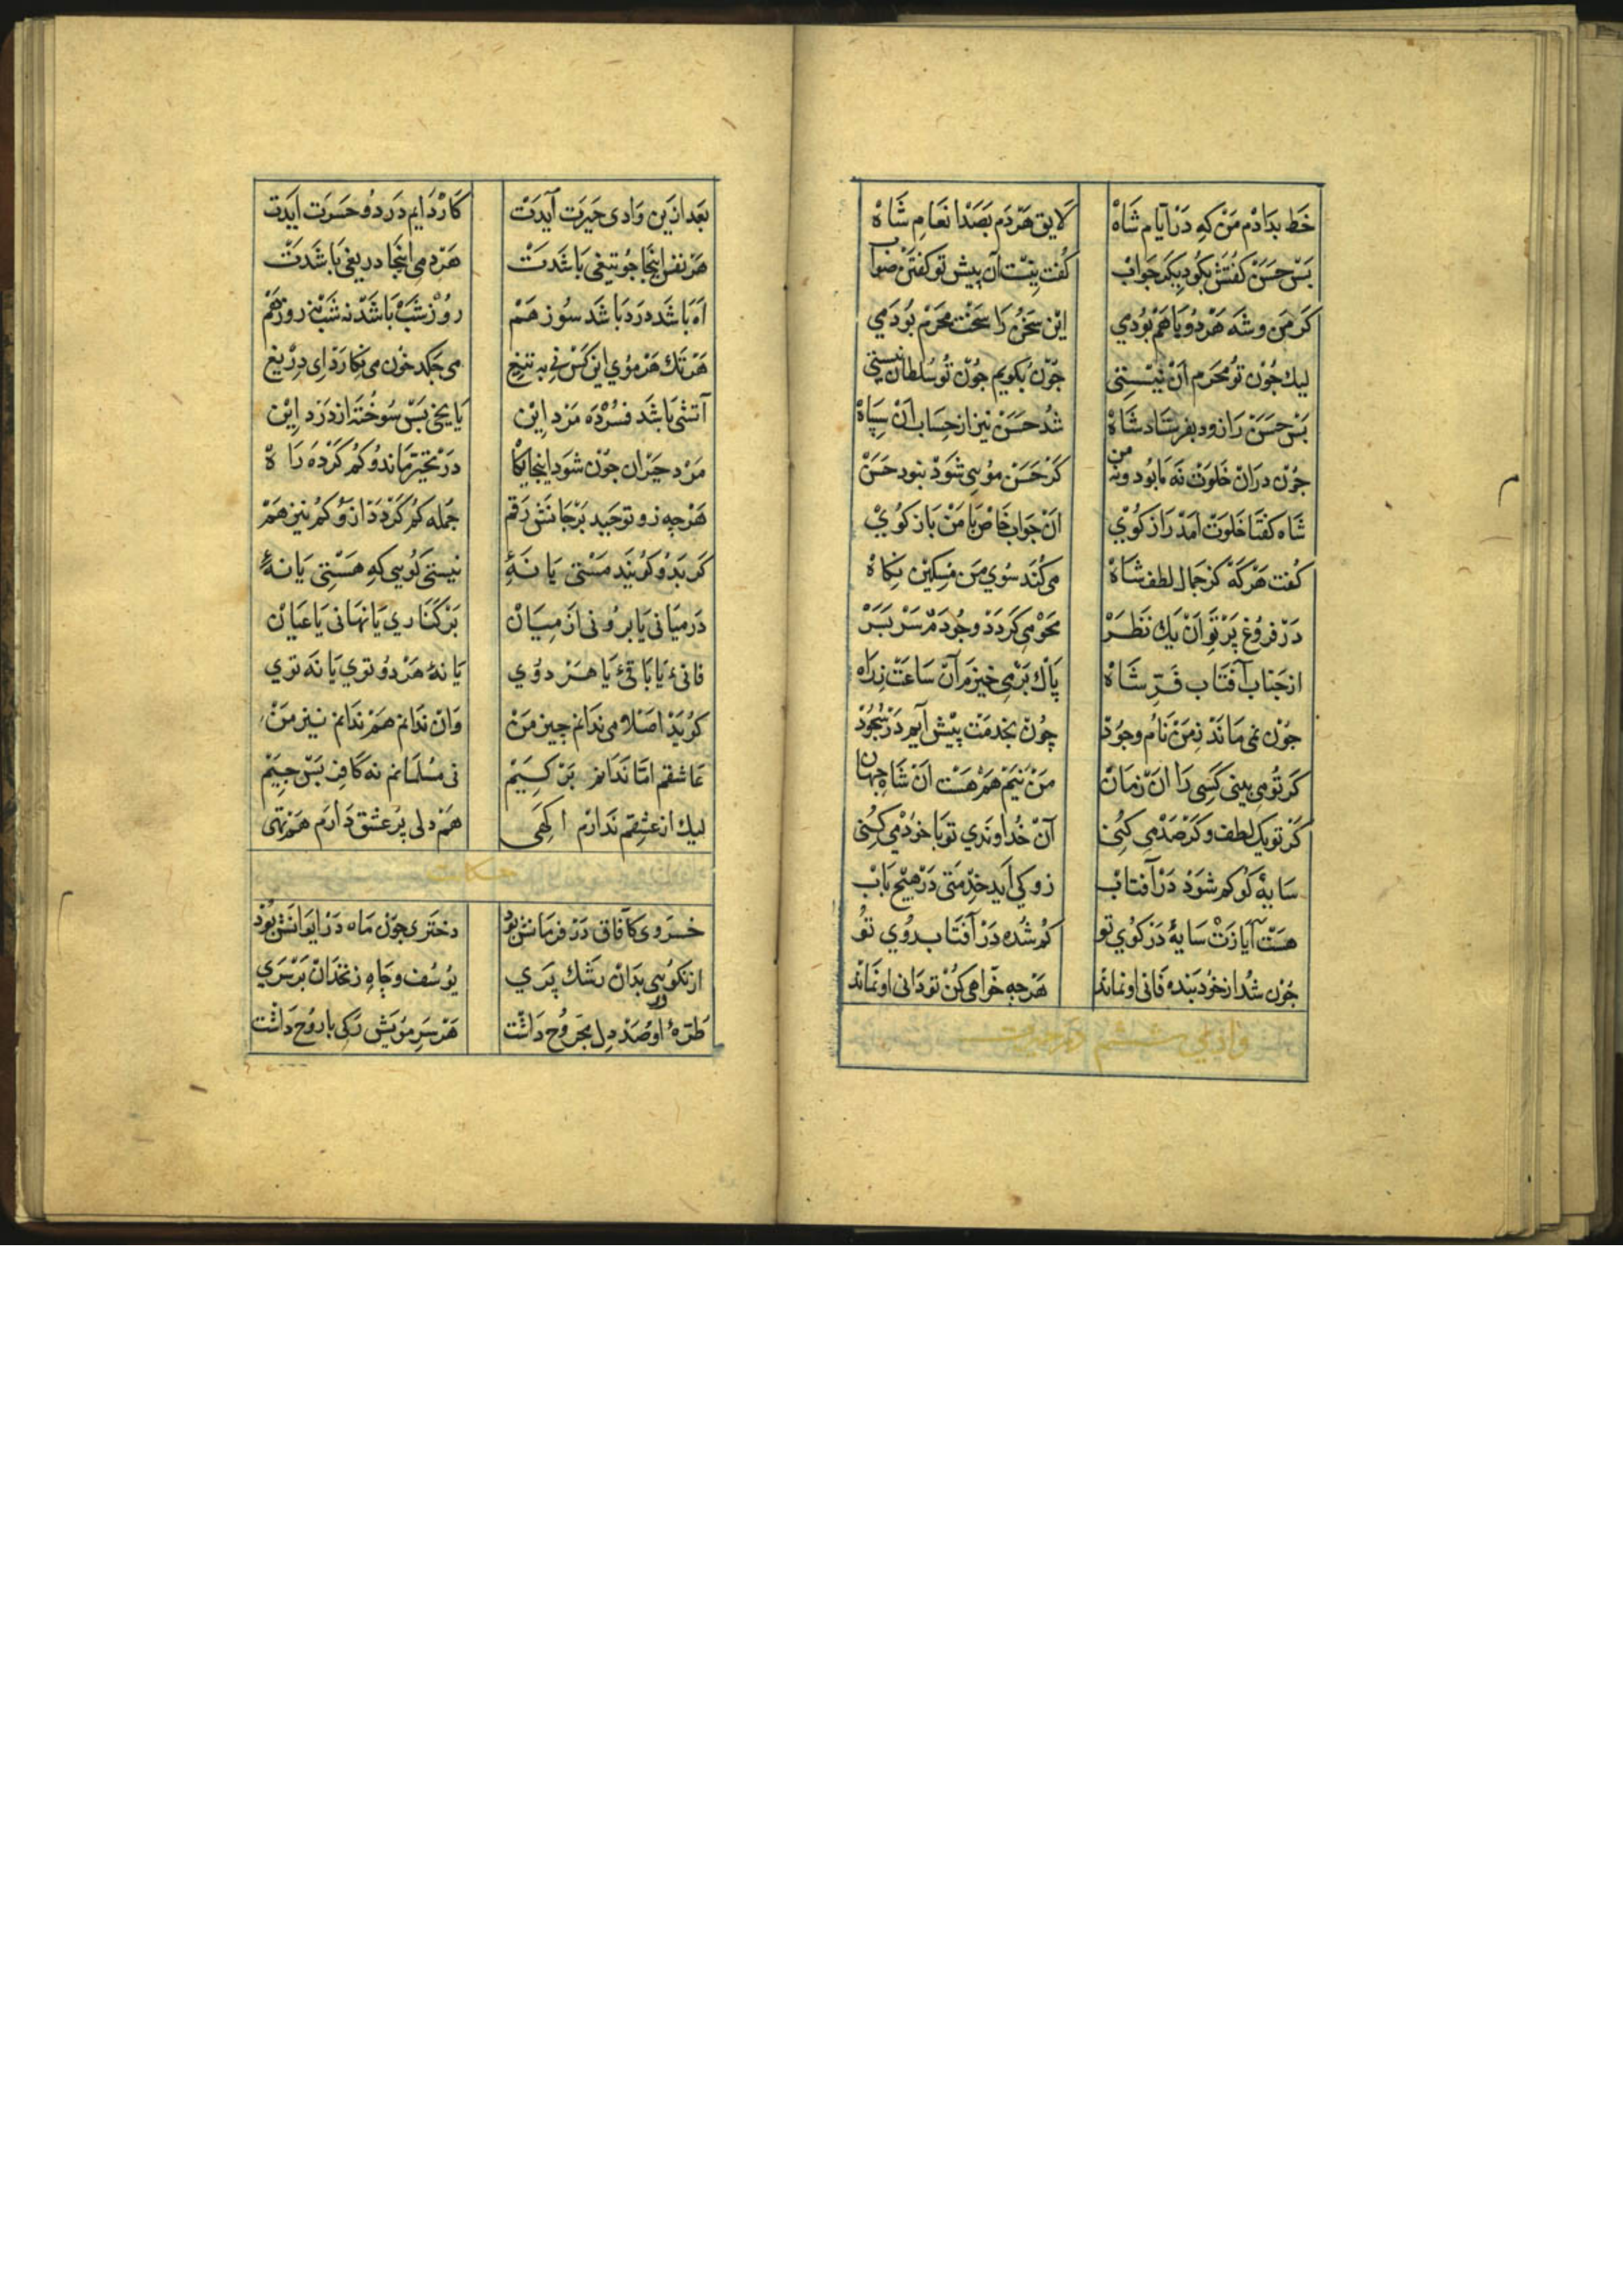 خَط بدَادْم مَنْ كهِ دَرْ اَيَّام شَاهْ لَايق هَرْدَم بَصَدْ انعَامِ شَاهْ
بَسْ حَسَنْ كفْتَشْ بكُو ديكَر جَوابْ كُفت نيْست آن پيش تو كفتَنْ صَوابْ
كَر مَن وشَه هَرْدُو بَا هَمْ بُودمي ايْن سَخُن رَا سَخْت مَحرَم بُودَمي
ليك جُوْن تُو مَحَرَم آنْ نيْستِى جُوْن بكويم جُوْن تُو سُلطَان نيستي
بَسْ حَسَنْ رَا زود بفرستَاد شَاهْ شُد حَسَنْ نيز از حِسَاب آنْ سِپاهْ
جُوْن دران خَلوَتْ نَه مَا بُود ونه مَن كَرْ حَسَنْ مُويى شَوَدْ نبود حَسَنْ
شَاه كفتَا خَلوَتْ آمَدْ رَاز كُوْي آنْ جَوابِ خَاصْ بَا مَنْ بَاز كُويْ
كُفت هَرْكَهْ كز جَمَال لطف شَاهْ مى كُنَد سُوي مَن مِسكِيْن نِكَاهْ
دَرْ فرُوغِ پَرْتَوِ آنْ يك نَظَرْ مَحْو مى كَردَدْ وجُودَمْ سَرْ بسَرْ
از جَنابِ آفتَاب فَرِّ شَاهْ پَاك بَرْمى خيزم آنْ سَاعَتْ زرَاه
جُوْن نمى مَاندْ زمَنْ نَام وجُودْ چُوْن بخدمَتْ پيْش آيم دَرْ سُجُودْ
كَرْ تُو مى بينى كَسِى رَا آنْ زمَانْ مَنْ نيَم هَمْ هَسْت آنْ شَاهِ جهَان
كَرْ تو يك لطف وكَرْ صَدْ مى كنُى آنْ خُداوَندي تو بَا خودْ مى كنُى
سَايهٴ كُو كم شوَدْ دَرْ آفتَابْ زو كي آيد خِدْمَتى دَرْ هيْچ بَابْ
هسَتْ اَيازَتْ سَايهٴ دَرْ كُوي تو كُم شُده دَرْ آفتَاب رُوي تُو
جُوْن شُد از خُود بَنده فَانى او نماند هَرْجه خَواهى كُنْ تو دَانى او نَمَاند
وادي ششم در حيرت
بعَد ازين وَادى حَيرَت آيدَتْ كَار دَايم دَرد وحَسرَت آيَدت
هَرْ نفس اينجَا جُو تيغى بَاشَدَتْ هَرْدمى اينجَا دريغى بَاشَدَتْ
آه بَاشَد درَد بَاشَد سُوز هَمْ روُز شَبْ بَاشَد نه شَبْ نه روز هَمْ
هَرْ تك هَرْ مُوي اين كَسْ نى به تيغ مى جَكد خُون مى نِكَارَدْ اى دِرْيغ
آتشى بَاشَد فسُرْدَه مَرْد اِيْن يَا يخى بَسْ سُوخُته از دَرد اِيْن
مَرْد حَيْران جُوْن شوَد اينجايكَا دَرْ تحيّر مَاند وكُم كَرْده رَا هْ
هَرْجه زد توحيد بَرْ جَانَشْ رَقم جُمله كُم كَردَدْ ازو كُم نيز هَمْ
كَر بدو كويند مَسْتى يَا نَهٴ نيستى كُويى كهِ هَسْتى يَا نهٴ
دَر ميَانى يَا برُونى از ميَانْ بَرْ كنَارى يَا نهَانى يَا عَيَانْ
فانىٴ يَا بَاقىٴ يَا هَرْ دوْي يَا نهٴ هَرْ دو توي يَا نَه توي
كُويَد اصَلا مى نَدَانم چيز مَنْ وَانْ ندَانم هَمْ ندَانم نيز مَنْ
عَاشقم امَّا نَدَانم بَرْ كيَمْ نى مُسلمَانم نه كَافر بَسْ چيَمْ
ليك از عشِقم نَدارَم اكهى هَمْ دلى پُر عشق دَارَم هَمْ تهى
حكايت
خسرَوى كآفاق دَرْ فرمَانش بود دخترى جوُن مَاه دَرْ ايوَانَشْ بُوْد
از نكُويى بدَانْ رَشك پرَي يوُسُف وچَاهِ زنخدَانْ بَرْسَرَي
طُرهٴ او صَدْ دِل مجَروُح دَاشت هَرْسَرِ مُويَش رَكى با روُح دَاشت